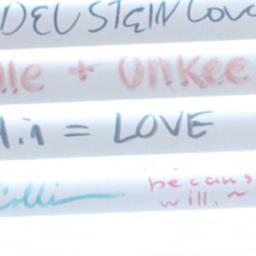 DEUSTEIN LOVE
lle + UnKee
H.i = LOVE
Colli
because
will. ~